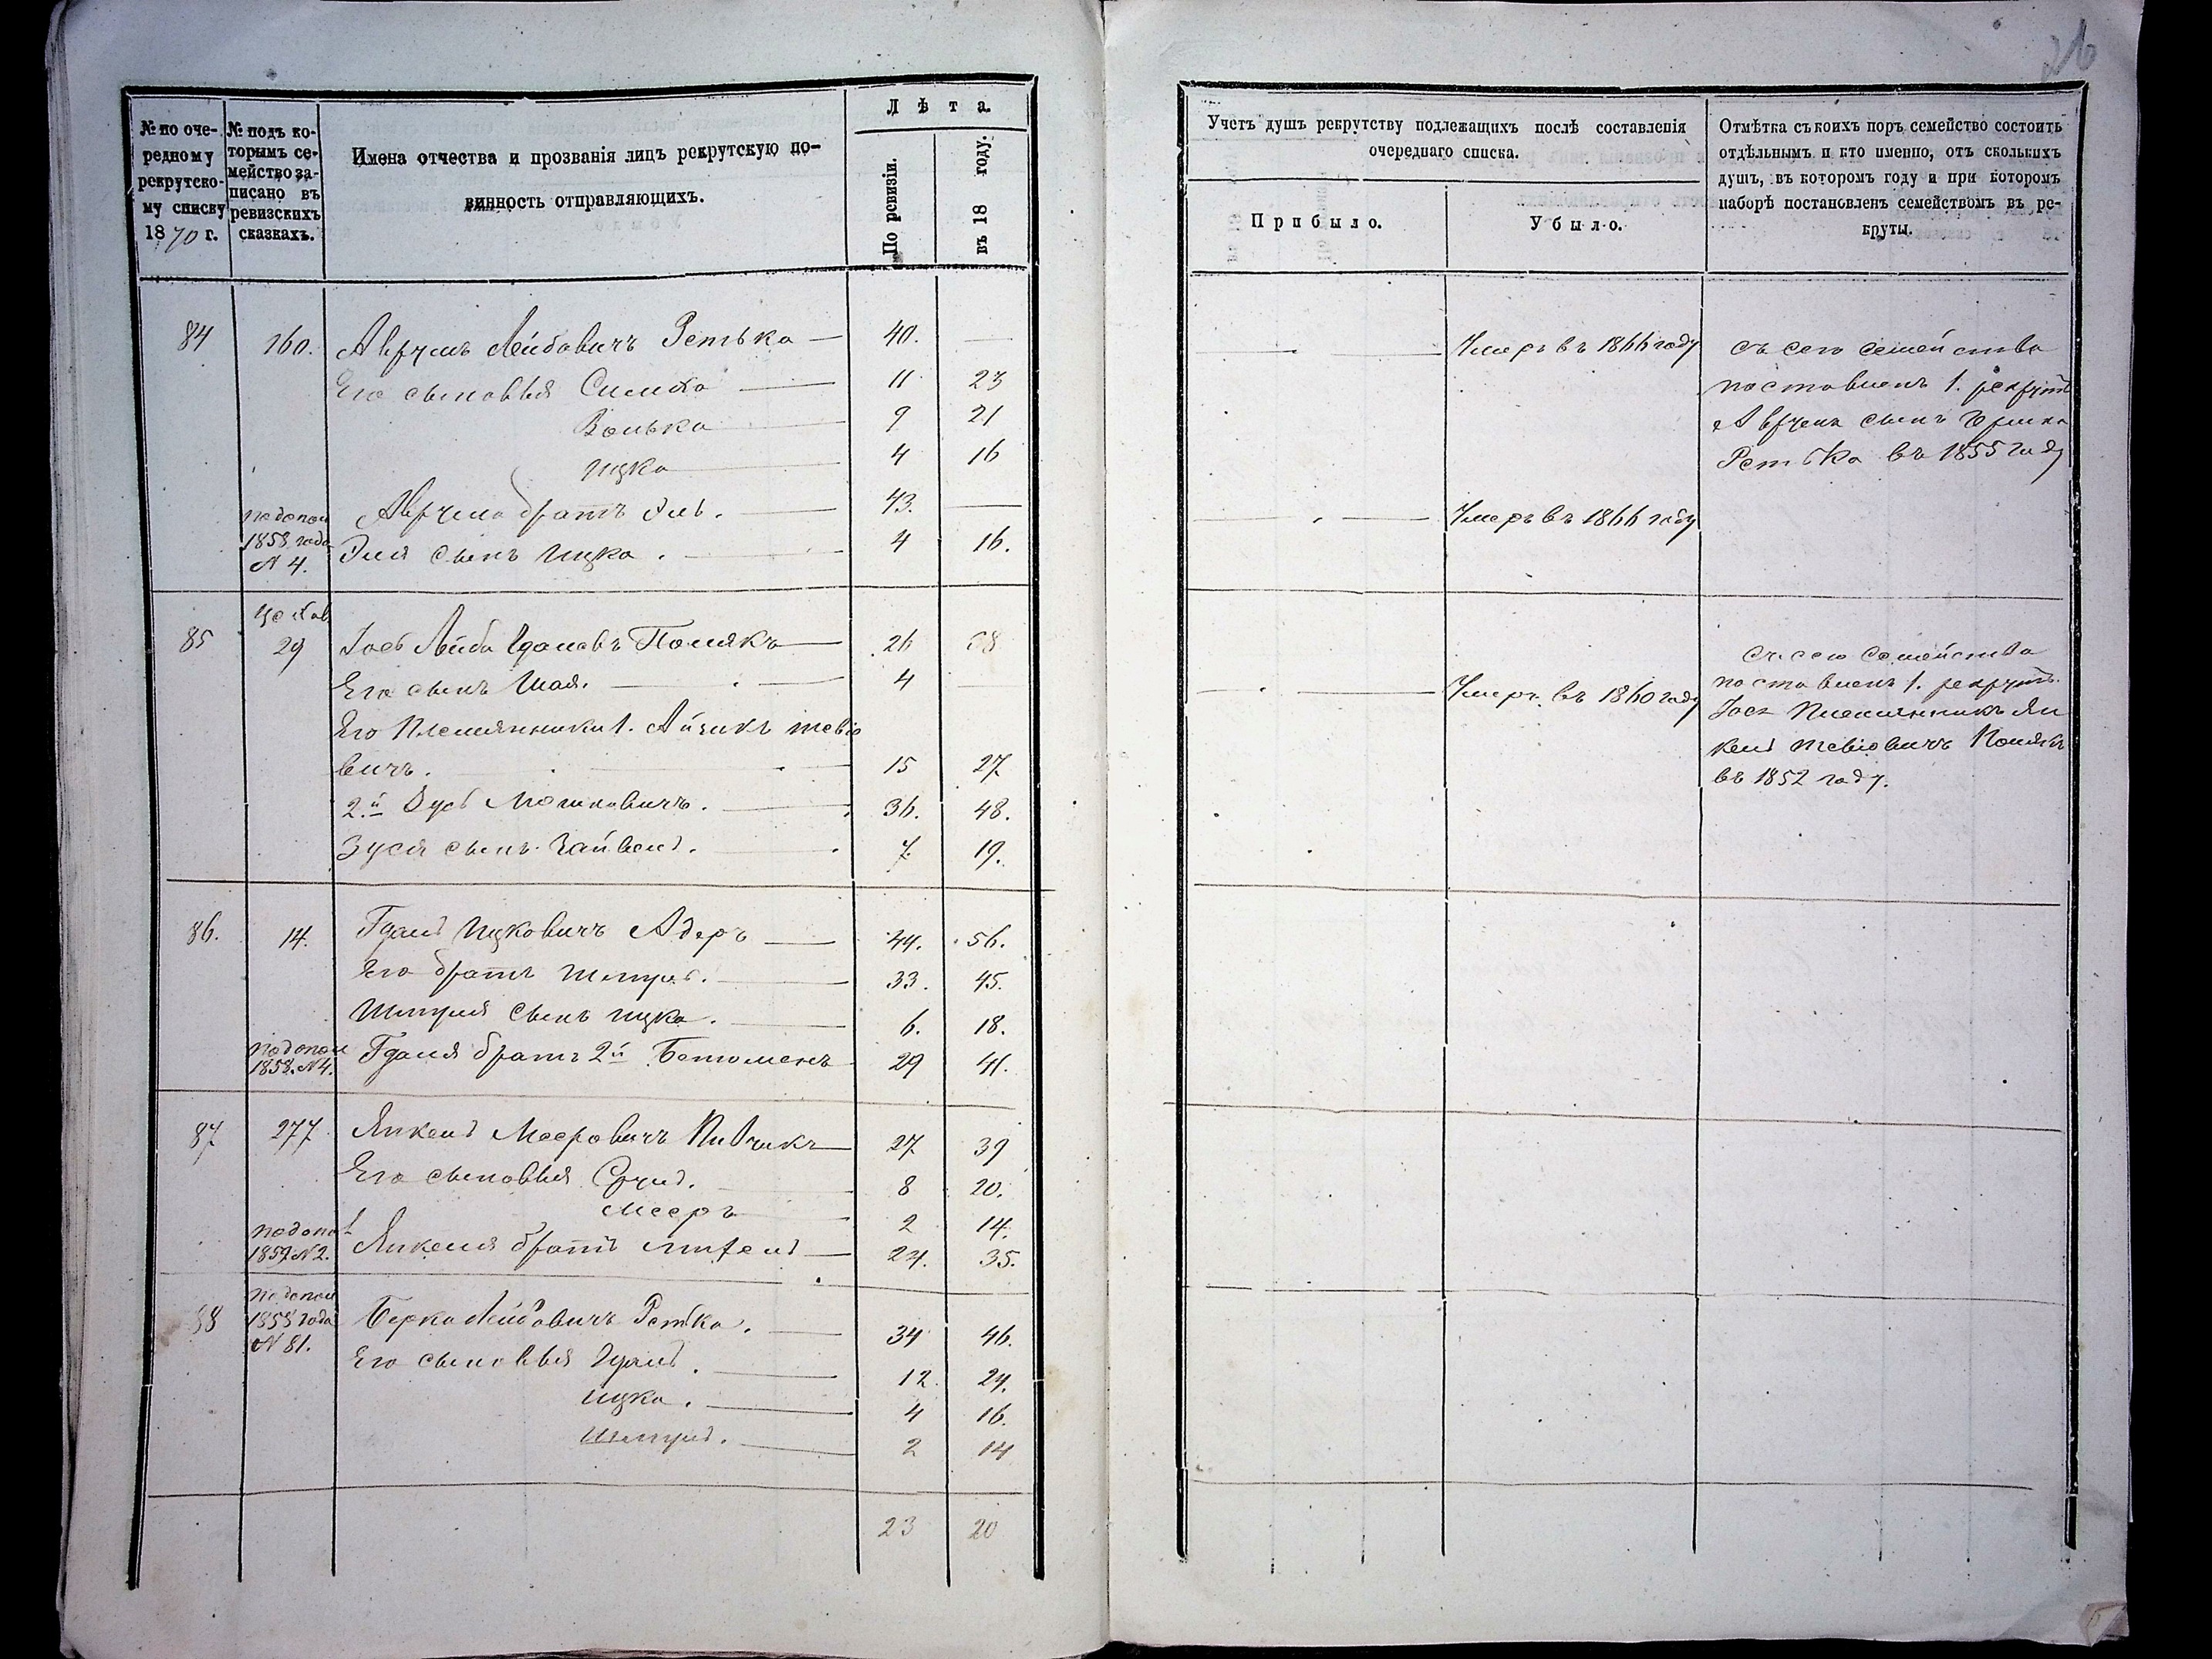 26
№ по оче-
редному
рекрутско-
му списку
1870 г.
№ подъ ко-
торымъ се-
мейство за-
писано въ
ревизскихъ
сказкахъ.
Имена отчества и прозванія лицъ рекрутскую по-
винность отправляющихъ.
Лѣта.
По ревизіи.
въ 18 году.
Учетъ душъ рекрутству подлежащихъ послѣ составленія
очереднаго списка.
Прибыло.
Убыло.
Отмѣтка съ коихъ поръ семейство состоитъ
отдѣльнымъ и кто именно, отъ сколькихъ
душъ, въ которомъ году и при которомъ
наборѣ постановленъ семействомъ въ ре-
круты.
84 160. Аврумъ Лейбовичъ Ретька — 40. — Умеръ въ 1866 году съ сего семейства
Его сыновья Симха — 11 23 поставленъ 1. рекрутъ
Волька 9 21 Аврума сынъ Ершка
Ицка 4 16 Ретька въ 1855 году
по допол Аврума братъ Эль. — 43. — Умеръ въ 1866 году
1858 года Эля сынъ Ицка. — 4 16.
№ 4.
85 29 Іось Лейба Гдалевъ Полякъ — 26 38 съ сего семейства
Его сынъ Шая. — 4 — Умеръ въ 1860 году поставленъ 1. рекрутъ
Его Племянники 1. Айзикъ Тевіо Іося Племянникъ Ян
вичъ. — 15 27 кель Тевіовичъ Полякъ
2.й Зусь Мошковичъ. — 36. 48. въ 1852 году.
Зуся сынъ Файвель. — 7. 19.
86. 14. Гдаль Ицковичъ Адеръ — 44. 56.
Его братъ Шмуль. — 33. 45.
Шмуля сынъ Ицка. — 6. 18.
по допол Гдаля братъ 2й
1858. №4. 29 41.
87 277 Янкель Мееровичъ Пивчикъ — 27 39
Его сыновья Сруль. — 8 20.
Мееръ 2 14.
по допол
1859 №2. Янкеля братъ — 24. 35.
по допол
88 1858 года Берко Лейбовичъ Ретька. — 34 46.
№ 81.
Его сыновья Гдаль. — 12 24.
Ицка. — 4 16.
Шмуль. — 2 14
23 20